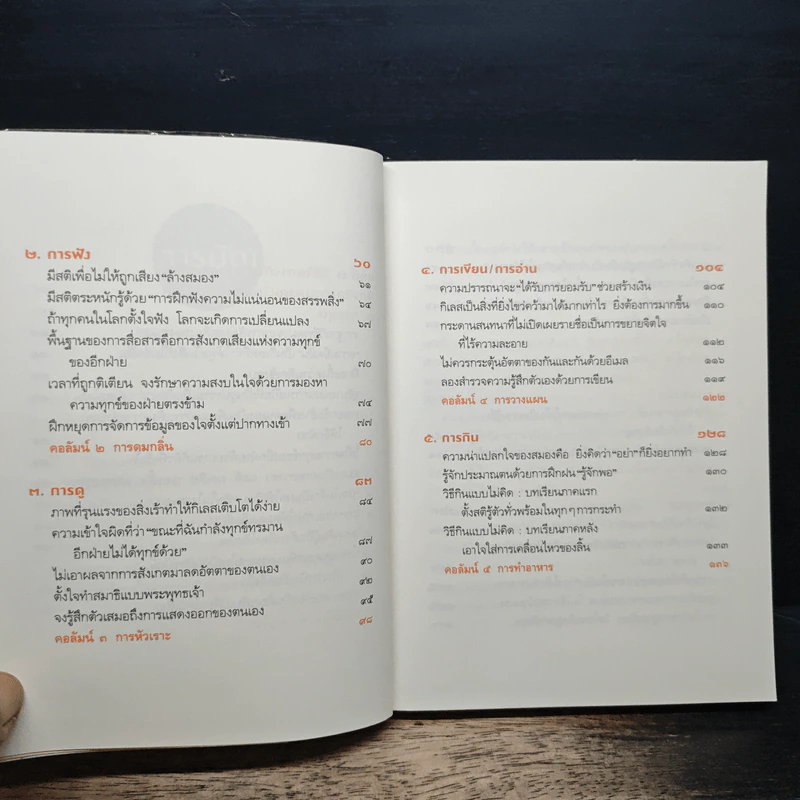 ๒. การฟัง ๖๐
มีสติเพื่อไม่ให้ถูกเสียง“ล้างสมอง” ๖๑
มีสติตระหนักรู้ด้วย“การฝึกฟังความไม่แน่นอนของสรรพสิ่ง” ๖๔
ถ้าทุกคนในโลกตั้งใจฟัง โลกจะเกิดการเปลี่ยนแปลง ๖๗
พื้นฐานของการสื่อสารคือการสังเกตเสียงแห่งความทุกข์
ของอีกฝ่าย ๗๐
เวลาที่ถูกติเตียน จงรักษาความสงบในใจด้วยการมองหา
ความทุกข์ของฝ่ายตรงข้าม ๗๔
ฝึกหยุดการจัดการข้อมูลของใจตั้งแต่ปากทางเข้า ๗๗
คอลัมน์ ๒ การดมกลิ่น ๘๐
๓. การดู ๘๓
ภาพที่รุนแรงของสิ่งเร้าทำให้กิเลสเติบโตได้ง่าย ๘๔
ความเข้าใจผิดที่ว่า“ขณะที่ฉันกำลังทุกข์ทรมาน
อีกฝ่ายไม่ได้ทุกข์ด้วย” ๘๗
ไม่เอาผลจากการสังเกตมาลดอัตตาของตนเอง ๙๐
ตั้งใจทำสมาธิแบบพระพุทธเจ้า ๙๒
จงรู้สึกตัวเสมอถึงการแสดงออกของตนเอง ๙๕
คอลัมน์ ๓ การหัวเราะ ๙๘
๔. การเขียน/การอ่าน ๑๐๔
ความปรารถนาจะ“ได้รับการยอมรับ”ช่วยสร้างเงิน ๑๐๔
กิเลสเป็นสิ่งที่ยิ่งไขว่คว้ามาได้มากเท่าไร ยิ่งต้องการมากขึ้น ๑๑๐
กระดานสนทนาที่ไม่เปิดเผยรายชื่อเป็นการขยายจิตใจ
ที่ไร้ความละอาย ๑๑๒
ไม่ควรกระตุ้นอัตตาของกันและกันด้วยอีเมล ๑๑๖
ลองสำรวจความรู้สึกตัวเองด้วยการเขียน ๑๑๙
คอลัมน์ ๔ การวางแผน ๑๒๒
๕. การกิน ๑๒๘
ความน่าแปลกใจของสมองคือ ยิ่งคิดว่า“อย่า”ก็ยิ่งอยากทำ ๑๒๘
รู้จักประมาณตนด้วยการฝึกฝน“รู้จักพอ” ๑๓๐
วิธีกินแบบไม่คิด : บทเรียนภาคแรก
ตั้งสติรู้ตัวทั่วพร้อมในทุกๆการกระทำ ๑๓๒
วิธีกินแบบไม่คิด : บทเรียนภาคหลัง
เอาใจใส่การเคลื่อนไหวของลิ้น ๑๓๓
คอลัมน์ ๕ การทำอาหาร ๑๓๖